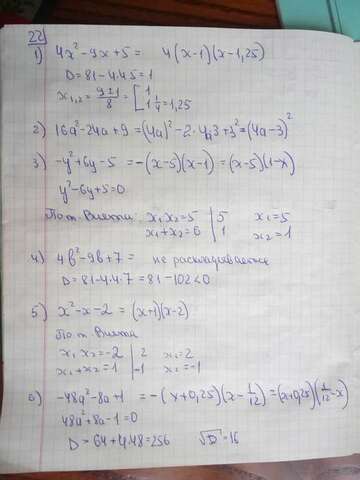 22
1) 4x² - 9x + 5 = 4(x-1)(x-1,25)
D = 81 - 4·4·5 = 1
x₁,₂ = (9±1)/8 = [ 1
1 1/4 = 1,25
2) 16a² - 24a + 9 = (4a)² - 2·4a·3 + 3² = (4a-3)²
3) -y² + 6y - 5 = -(x-5)(x-1) = (x-5)(1-x)
y² - 6y + 5 = 0
По т. Виета: x₁x₂ = 5 | 5 x₁ = 5
x₁ + x₂ = 6 | 1 x₂ = 1
4) 4b² - 9b + 7 = не раскладывается
D = 81 - 4·4·7 = 81 - 102 < 0
5) x² - x - 2 = (x+1)(x-2)
По т. Виета
x₁x₂ = -2 | 2 x₁ = 2
x₁ + x₂ = 1 | -1 x₂ = -1
6) -48a² - 8a + 1 = -(x+0,25)(x - 1/12) = (x+0,25)(1/12 - x)
48a² + 8a - 1 = 0
D = 64 + 4·48 = 256 √D = 16